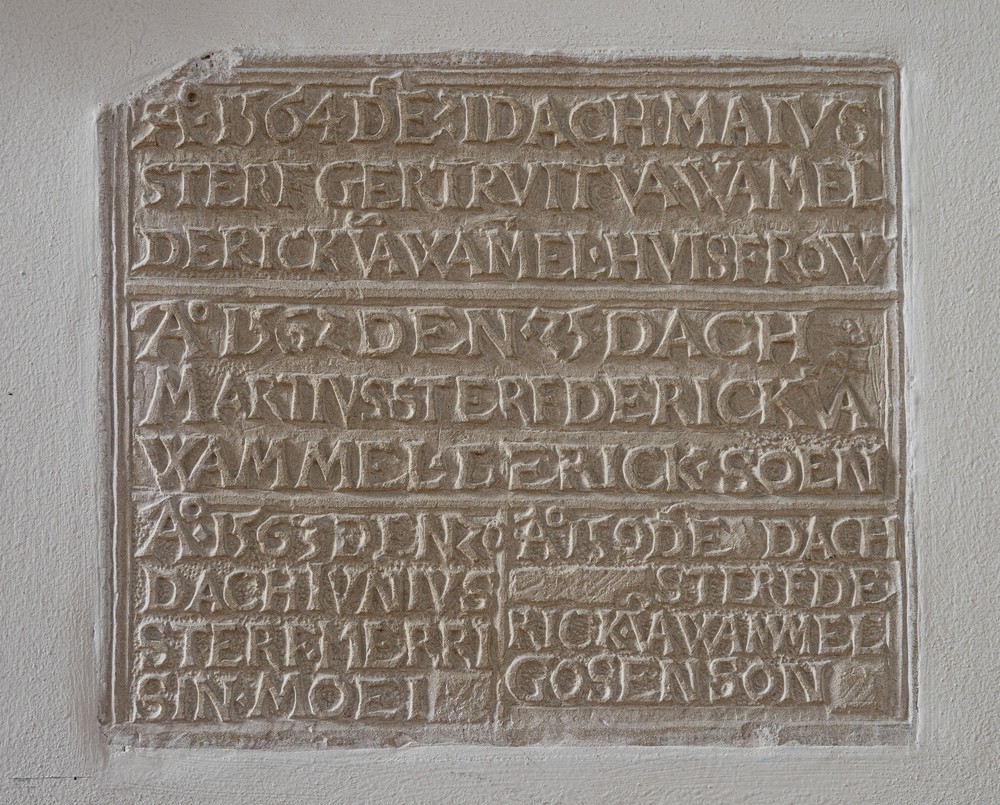 Aº·1564 DĒ·I DACH·MAIVS
STERF GERTRVIT VA·WAMEL
DERICK V̄A WAM̄EL·HVISFROW
Aº 1562 DEN 25 DACH
MARTIVS STERF DERICK VA
WAMMEL DERICK SOEN
Aº·1563 DEN 20
DACH IVNIVS
STERF MERRI
SIN·MOEI
Aº 159 DĒ DACH
STERF DE
RICK V̄A WAMMEL
GOSEN SON